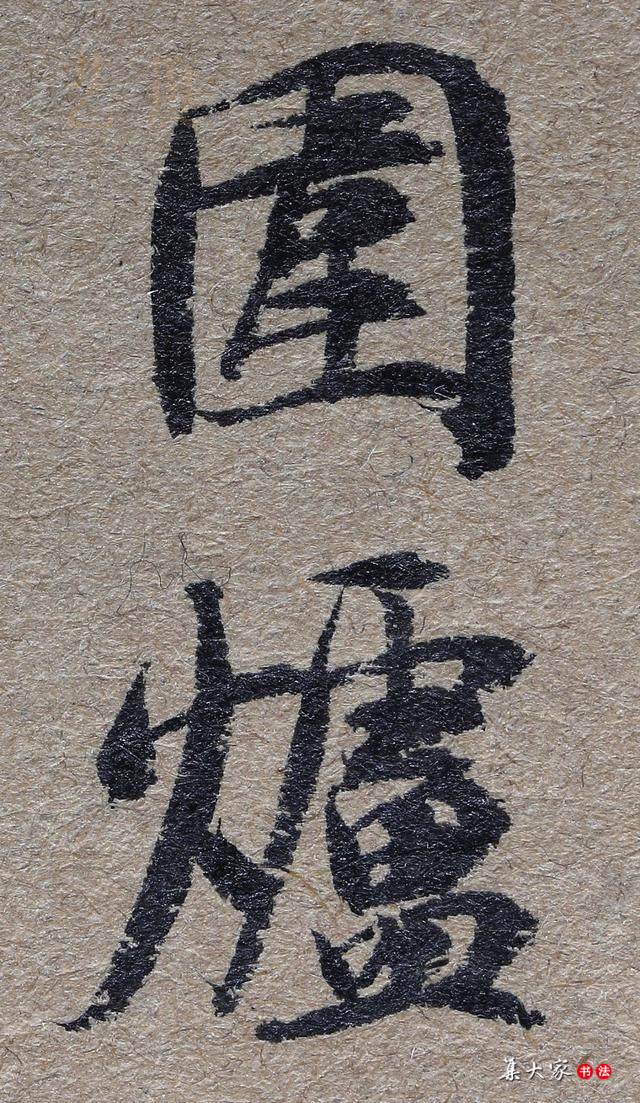 圍爐
集大家书法